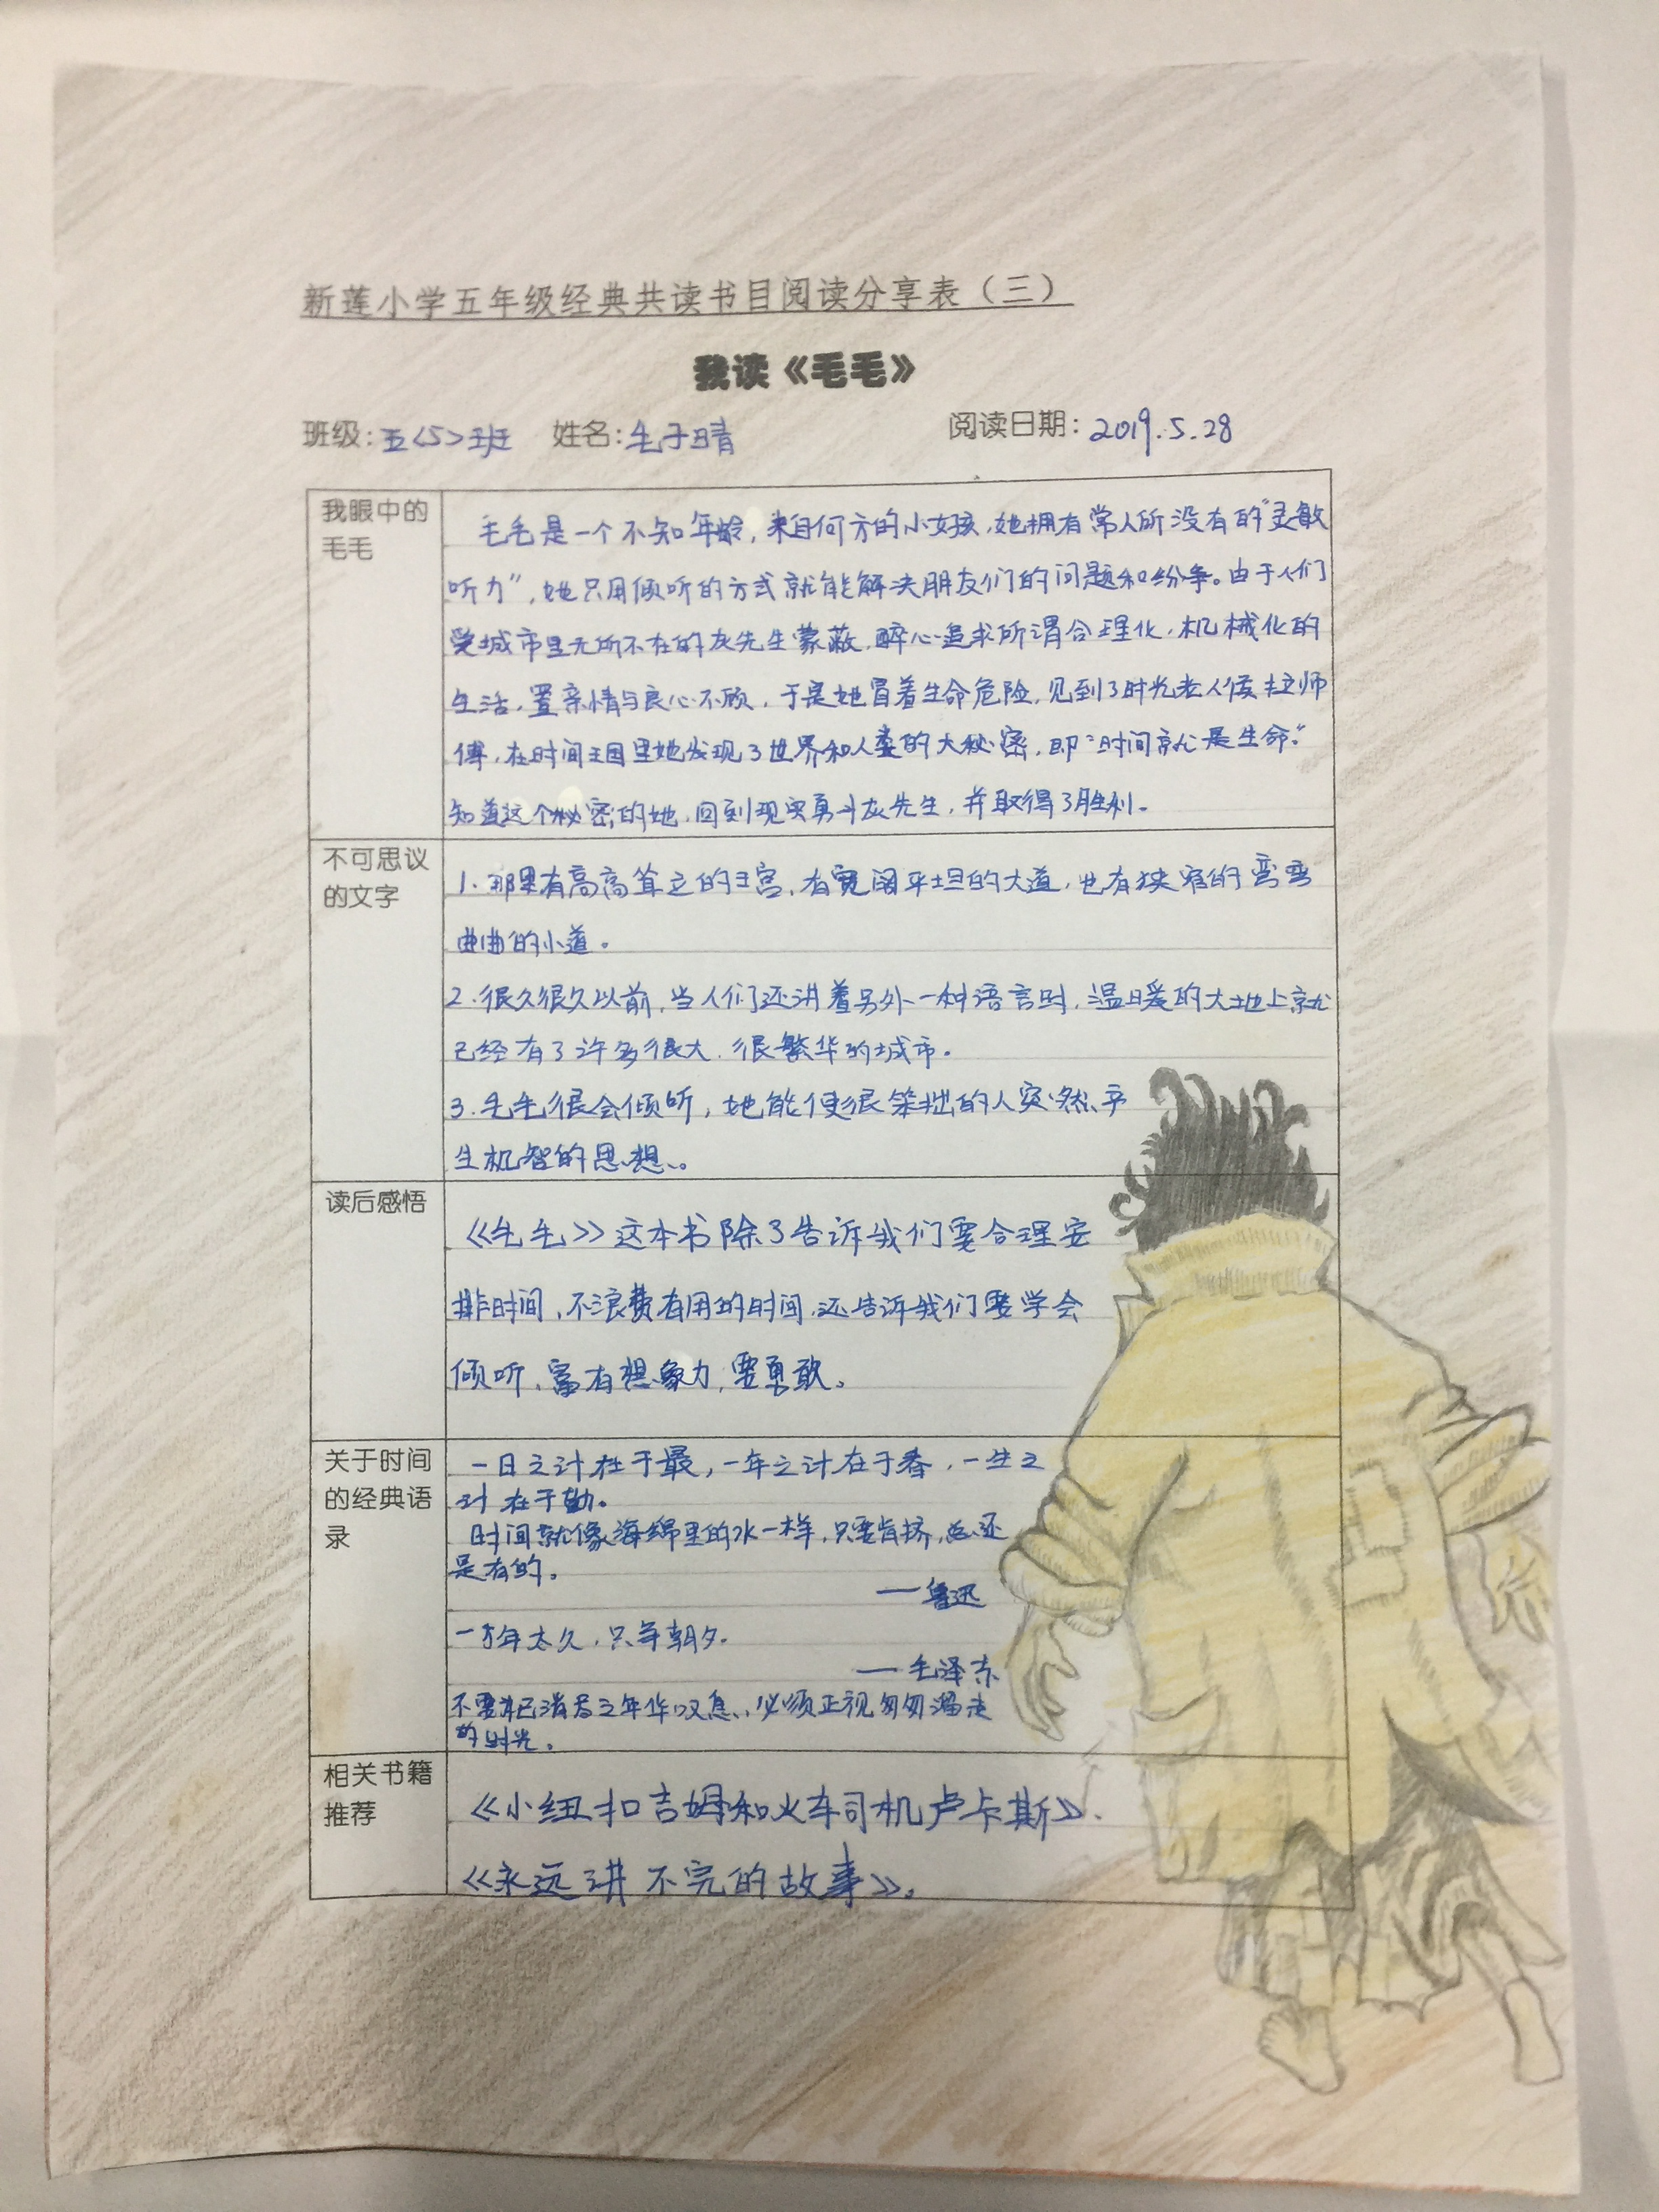 新莲小学五年级经典共读书目阅读分享表（三）
我读《毛毛》
班级：五<5>班 姓名：毛子晴 阅读日期：2019.5.28
我眼中的
毛毛
毛毛是一个不知年龄，来自何方的小女孩，她拥有常人所没有的“灵敏
听力”，她只用倾听的方式就能解决朋友们的问题和纷争。由于人们
受城市里无所不在的灰先生蒙蔽，醉心追求所谓合理化，机械化的
生活，置亲情与良心不顾，于是她冒着生命危险，见到了时光老人侯拉师
傅，在时间王国里她发现了世界和人类的大秘密，即“时间就是生命”
知道这个秘密的她，回到现实勇斗灰先生，并取得了胜利。
不可思议
的文字
1.那里有高高耸立的王宫，有宽阔平坦的大道，也有狭窄的弯弯
曲曲的小道。
2.很久很久以前，当人们还讲着另外一种语言时，温暖的大地上就
已经有了许多很大，很繁华的城市。
3.毛毛很会倾听，她能使很笨拙的人突然产
生机智的思想。
读后感悟
《毛毛》这本书除了告诉我们要合理安
排时间，不浪费有用的时间，还告诉我们要学会
倾听，富有想象力，要勇敢。
关于时间
的经典语
录
一日之计在于晨，一年之计在于春，一生之
计在于勤。
时间就像海绵里的水一样，只要肯挤，总还
是有的。
——鲁迅
一万年太久，只争朝夕。
——毛泽东
不要为已消尽之年华叹息，必须正视匆匆溜走
的时光。
相关书籍
推荐
《小纽扣吉姆和火车司机卢卡斯》.
《永远讲不完的故事》。